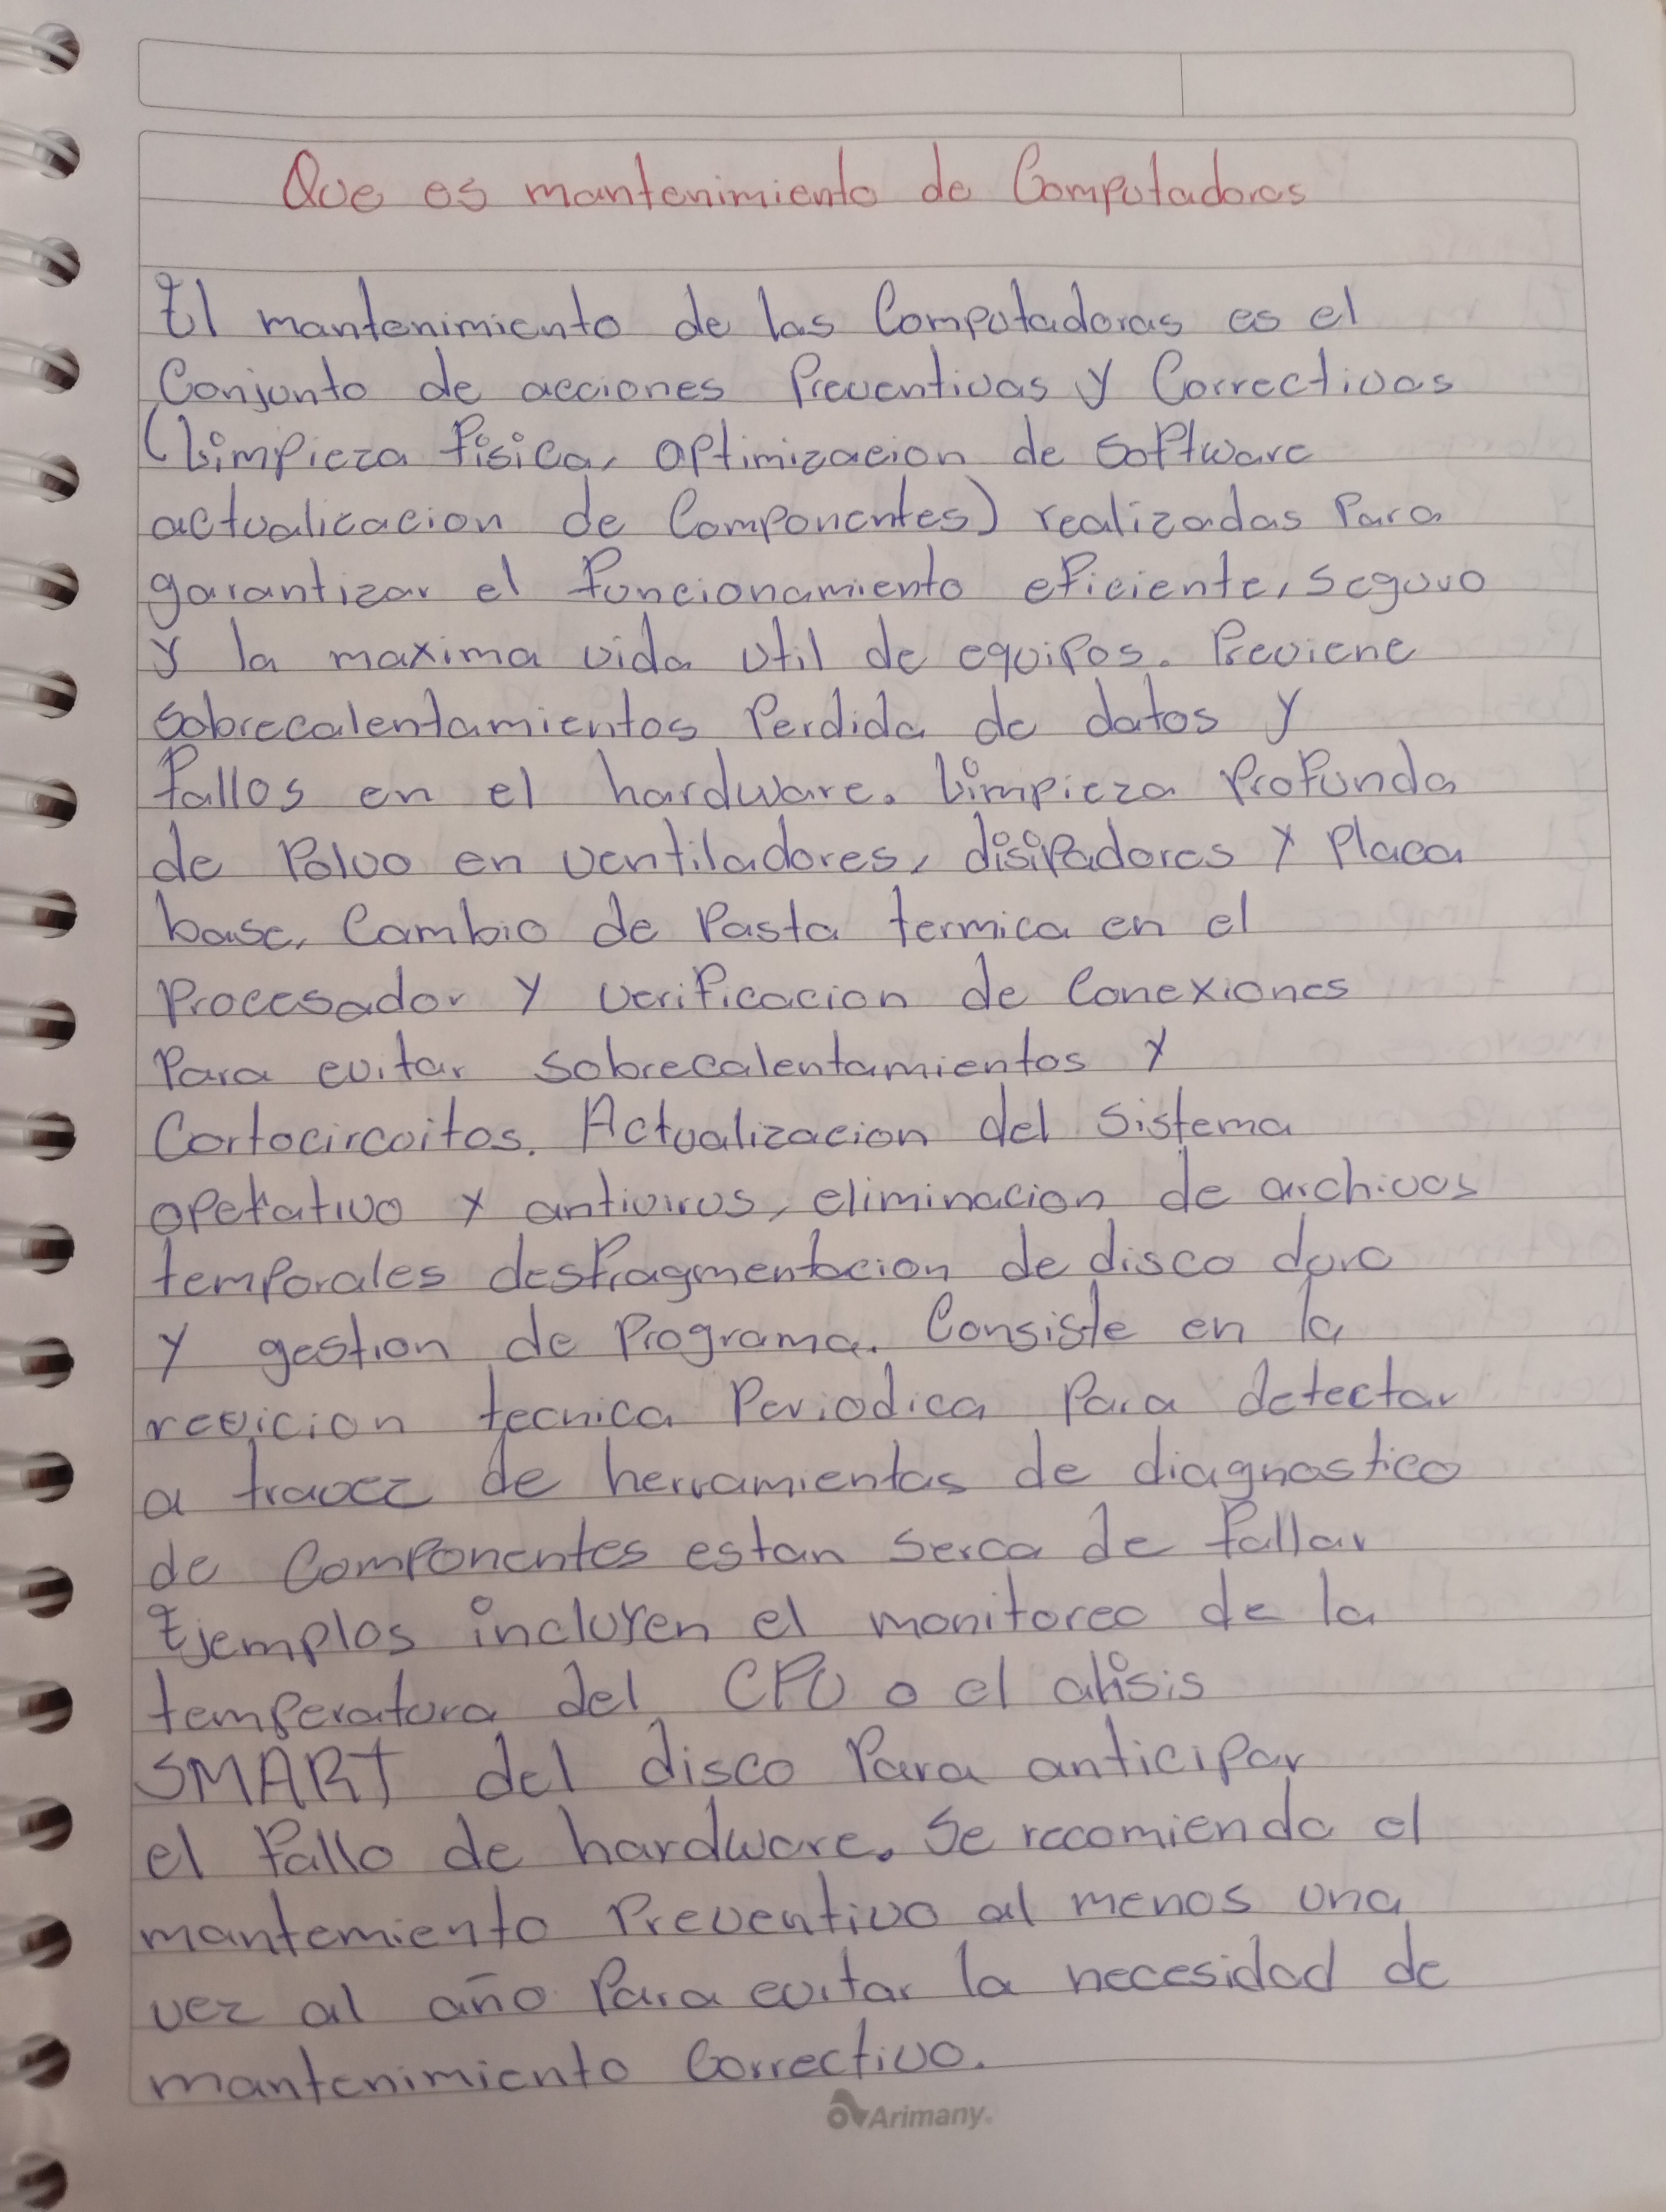 Que es mantenimiento de Computadoras
El mantenimiento de las Computadoras es el
Conjunto de acciones Preventivas y Correctivas
(Limpieza física, optimizacion de software
actualicacion de Componentes) realizadas Para
garantizar el funcionamiento eficiente, seguro
y la maxima vida util de equipos. Previene
sobrecalentamientos Perdida de datos y
fallos en el hardware. Limpieza Profunda
de Polvo en ventiladores, disipadores y Placa
base, Cambio de Pasta termica en el
Procesador y verificacion de Conexiones
Para evitar sobrecalentamientos y
Cortocircuitos. Actualizacion del sistema
operativo y antivirus, eliminacion de archivos
temporales desfragmentacion de disco duro
y gestion de Programa. Consiste en la
revicion tecnica Periodica Para detectar
a travez de herramientas de diagnostico
de Componentes estan serca de fallar
Ejemplos incluyen el monitoreo de la
temperatura del CPU o el alisis
SMART del disco Para anticipar
el fallo de hardware. Se recomienda el
mantemiento Preventivo al menos una
vez al año Para evitar la necesidad de
mantenimiento Correctivo.
Arimany